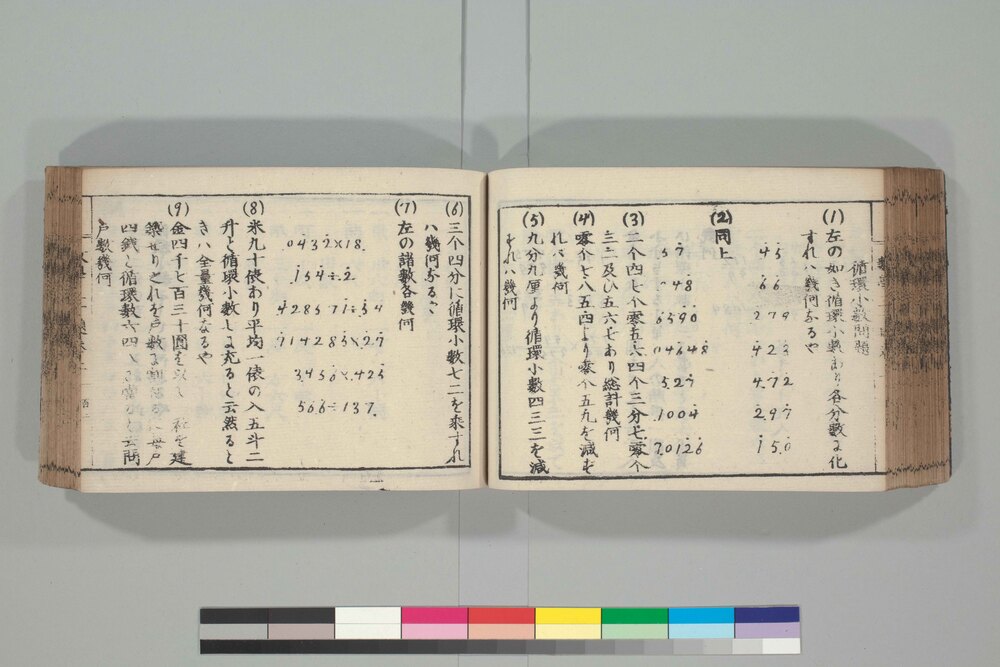 循環小數問題
(1) 左の如き循環小數あり各分數に化
すれハ幾何なるや
.45 .66 .279 .423 4.72 2.97 .150
(2) 同上
.57 .48 .6590 .04648 5.27 .1004 7.0126
(3) 三个四七个零五六四个三分七零个
三二二及ひ五六七あり總計幾何
(4) 零个七八五四より零个五九を減す
れハ幾何
(5) 九分九厘より循環小數四三三を減
すれハ幾何
(6) 三个四分に循環小數七二を乘すれ
ハ幾何なるや
(7) 左の諸數各幾何
.0432×18
.154÷.2
.428571÷.34
.714285×.27
3.456×.425
.566÷.137
(8) 米九十俵あり平均一俵の入五斗二
升と循環小數しに充ると云然ると
きハ全量幾何なるや
(9) 金四千七百三十圓を以 校を建
築せりこれを戸數に 毎戸
四錢と循環數六四 ると云問
戸數幾何